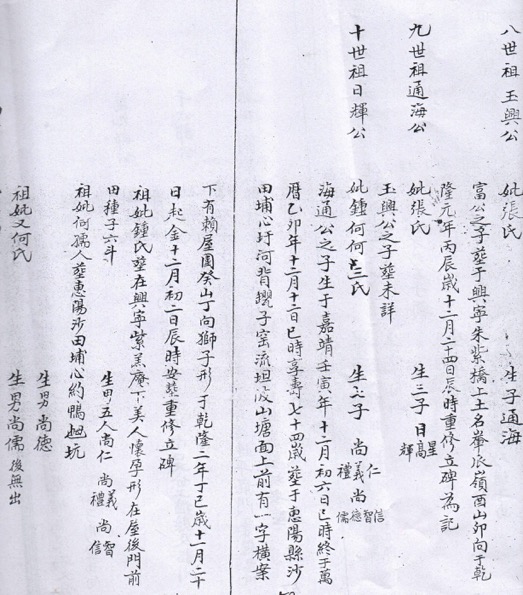 八世祖玉興公 妣張氏 生子通海
富公之子葬于興寧朱紫橋上土名峯辰嶺酉山卯向于乾
隆元年丙辰歲十二月二十四日辰時重修立碑為記
九世祖通海公 妣張氏 生三子日星高輝
玉興公之子葬未詳
十世祖日輝公 妣鍾何何三氏 生六子尚仁義禮尚信智德儒
海通公之子生于嘉靖壬寅年十二月初六日巳時終于萬
曆乙卯年十二月十二日巳時享壽七十四歲葬于惠陽縣沙
田埔心圩河背 子窩流坦皮山塘面上前有一字橫案
下有賴屋園癸山丁向獅子形于乾隆二年丁巳歲十一月二十
日起金十二月初二日辰時安葬重修立碑
祖妣鍾氏葬在興寧紫羔庵下美人懷孕形在屋後門前
田種子六斗 生男五人尚仁義禮尚智信
祖妣何孺人葬惠陽沙田埔心約鴨 坑
生男尚德
祖妣又何氏 生男尚儒後無出